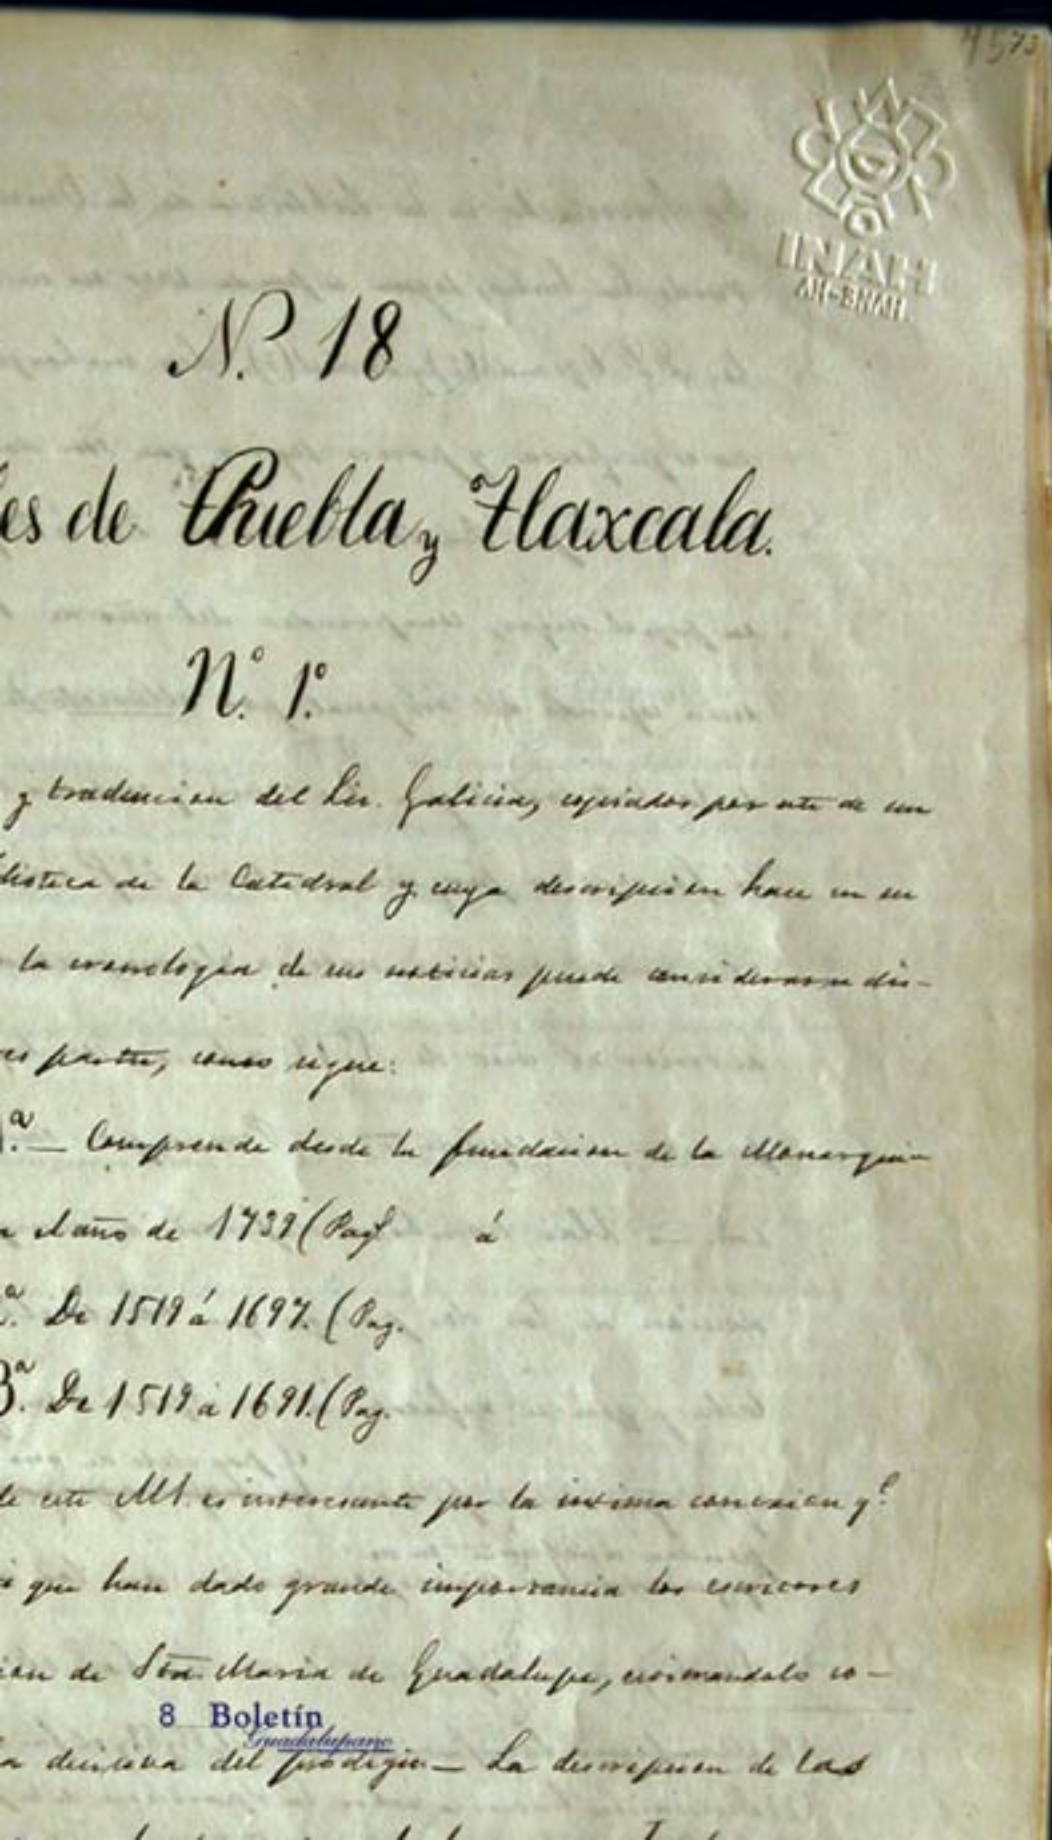 4573
INAH
AH-BNAH
N. 18
es de Puebla y Tlaxcala.
N.º 1.º
y traduccion del Lic. Galicia, copiados por este de un
blioteca de la Catedral y cuya descripcion hace en su
la cronologia de sus noticias puede considerarse div-
es partes, como sigue:
1.ª — Comprende desde la fundacion de la Monarquia
el año de 1739 (Pag. á
ª. De 1519 á 1697. (Pag.
3ª. De 1519 á 1691. (Pag.
de este MS. es interesante por la intima conexion q.e
que han dado grande importancia los escritores
ion de Sta. Maria de Guadalupe, estimandolo co-
a decisiva del prodigio. — La descripcion de las
8 Boletín
Guadalupano